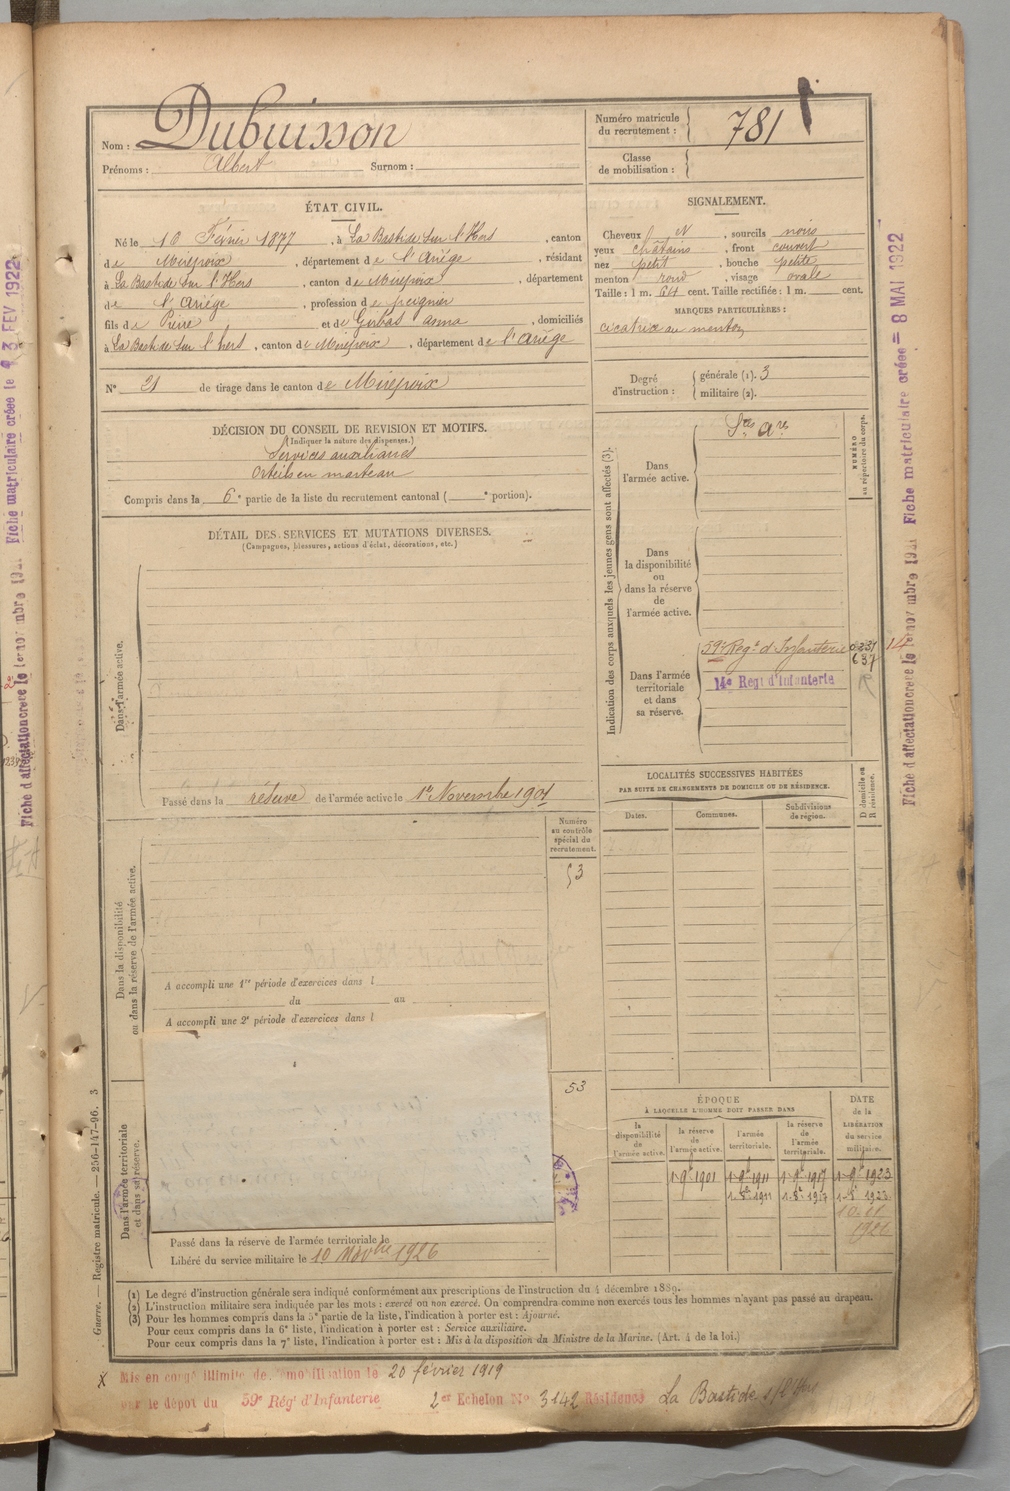 Nom : Dubuisson
Prénoms : Albert Surnom :
Numéro matricule du recrutement : 781
Classe de mobilisation :
ÉTAT CIVIL.
Né le 10 Février 1877, à La Bastide sur l'Hers, canton
de Mirepoix, département de l'Ariège, résidant
à La Bastide sur l'Hers, canton de Mirepoix, département
de l'Ariège, profession de peignier
fils de Pierre et de Anna, domiciliés
à La Bastide sur l'hers, canton de Mirepoix, département de l'Ariège
N° 21 de tirage dans le canton de Mirepoix
SIGNALEMENT.
Cheveux N, sourcils noirs
yeux châtains, front couvert
nez petit, bouche petite
menton rond, visage ovale
Taille : 1 m. 64 cent. Taille rectifiée : 1 m. cent.
MARQUES PARTICULIÈRES :
cicatrice au menton
Degré d'instruction : générale (1). 3
militaire (2).
DÉCISION DU CONSEIL DE REVISION ET MOTIFS.
(Indiquer la nature des dispenses.)
Services auxiliaires
Orteils en marteau
Compris dans la 6e partie de la liste du recrutement cantonal ( e portion).
DÉTAIL DES SERVICES ET MUTATIONS DIVERSES.
(Campagnes, blessures, actions d'éclat, décorations, etc.)
Dans l'armée active.
Passé dans la réserve de l'armée active le 1er Novembre 1901
Indication des corps auxquels les jeunes gens sont affectés (3).
NUMÉRO au répertoire du corps.
Dans l'armée active.
Dans la disponibilité ou dans la réserve de l'armée active.
Dans l'armée territoriale et dans sa réserve.
59e Regt d'Infanterie
14e Regt d'Infanterie
14
LOCALITÉS SUCCESSIVES HABITÉES
PAR SUITE DE CHANGEMENTS DE DOMICILE OU DE RÉSIDENCE.
Dates. Communes. Subdivisions de région. D domicile ou R résidence.
Numéro au contrôle spécial du recrutement.
53
Dans la disponibilité ou dans la réserve de l'armée active.
A accompli une 1re période d'exercices dans l
du au
A accompli une 2e période d'exercices dans l
53
Dans l'armée territoriale et dans sa réserve.
Passé dans la réserve de l'armée territoriale le
Libéré du service militaire le 10 Novbre 1926
ÉPOQUE
À LAQUELLE L'HOMME DOIT PASSER DANS
DATE de la LIBÉRATION du service militaire.
la disponibilité de l'armée active.
la réserve de l'armée active.
l'armée territoriale.
la réserve de l'armée territoriale.
1 9bre 1901 1 9bre 1911 1 9bre 1917 1 9bre 1923
(1) Le degré d'instruction générale sera indiqué conformément aux prescriptions de l'instruction du 4 décembre 1889.
(2) L'instruction militaire sera indiquée par les mots : exercé ou non exercé. On comprendra comme non exercés tous les hommes n'ayant pas passé au drapeau.
(3) Pour les hommes compris dans la 5e partie de la liste, l'indication à porter est : Ajourné.
Pour ceux compris dans la 6e liste, l'indication à porter est : Service auxiliaire.
Pour ceux compris dans la 7e liste, l'indication à porter est : Mis à la disposition du Ministre de la Marine. (Art. 4 de la loi.)
Guerre. — Registre matricule. — 256-147-96. 3
X Mis en congé illimité de démobilisation le 20 février 1919
par le dépôt du 59e Rég' d'Infanterie 2er Echelon No 3142 Résidence La Bastide s/ l'Hers
Fiche d'affectation créée le 1er novembre 1921 Fiche matriculaire créée = 8 MAI 1922